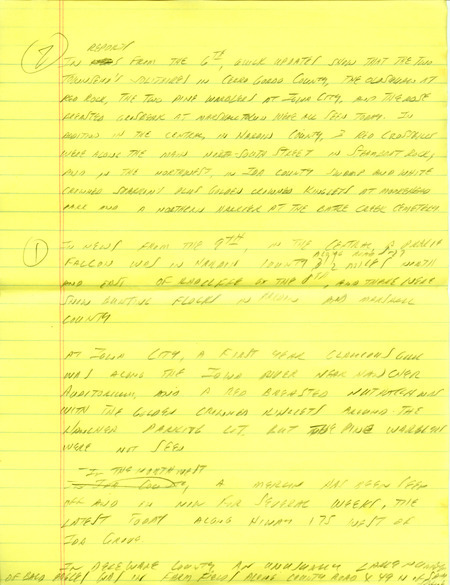 2
REPORTS
IN FROM THE 6TH, QUICK UPDATES SHOW THAT THE TWO
TOWNSEND'S SOLITAIRES IN CERRO GORDO COUNTY, THE OLDSQUAW AT
RED ROCK, THE TWO PINE WARBLERS AT IOWA CITY, AND THE ROSE
BREASTED GROSBEAK AT MARSHALLTOWN WERE ALL SEEN TODAY. IN
ADDITION IN THE CENTRAL, IN HARDIN COUNTY, 2 RED CROSSBILLS
WERE ALONG THE MAIN NORTH-SOUTH STREET IN STEAMBOAT ROCK,
AND IN THE NORTHWEST, IN IDA COUNTY SWAMP AND WHITE
CROWNED SPARROWS PLUS GOLDEN CROWNED KINGLETS AT MOOREHEAD
PARK AND A NORTHERN HARRIER AT THE BATTLE CREEK CEMETERY
1
IN NEWS FROM THE 9TH, IN THE CENTRAL A PRAIRIE
FALCON WAS IN HARDIN COUNTY 2 1/2 MILES NORTH
AND EAST OF ON THE 8TH, AND THERE WERE
SNOW BUNTING FLOCKS IN HARDIN AND MARSHALL
COUNTY
AT IOWA CITY, A FIRST YEAR GLAUCOUS GULL
WAS ALONG THE IOWA RIVER NEAR HANCHER
AUDITORIUM, AND A RED BREASTED NUTHATCH WAS
WITH THE GOLDEN CROWNED KINGLETS AROUND THE
HANCHER PARKING LOT, BUT THE PINE WARBLERS
WERE NOT SEEN
IN THE NORTHWEST
IN IDA COUNTY, A MERLIN HAS BEEN SEEN
OFF AND ON NOW FOR SEVERAL WEEKS, THE
LATEST TODAY ALONG HIWAY 175 WEST OF
IDA GROVE.
IN DELEWARE COUNTY AN UNUSUALLY LARGE NUMBER
OF BALD EAGLES WAS IN FARM FIELDS ALONG COUNTY ROAD